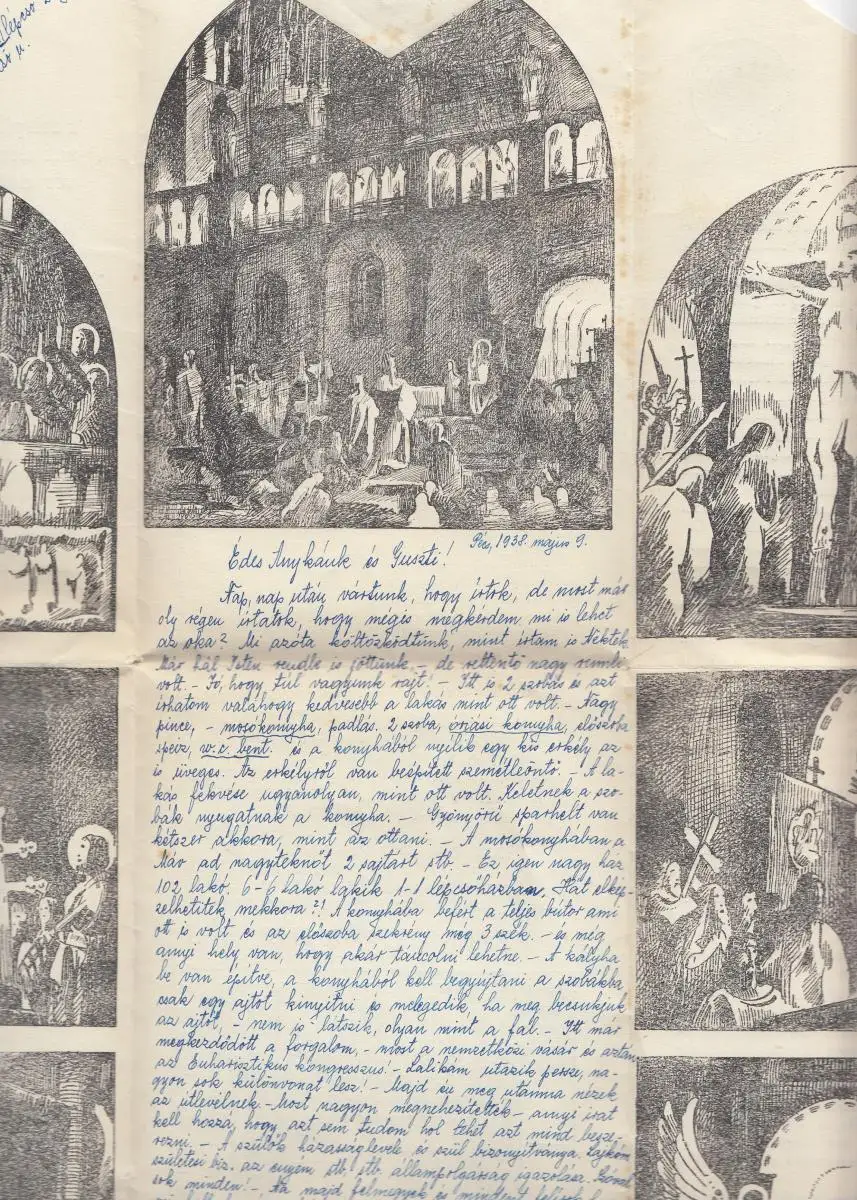 lépcső
u.
Pécs, 1938. május 9.
Édes Anykánk és Guszti!
Nap, nap után vártunk, hogy írtok, de most már
oly régen írtatok, hogy mégis megkérdem mi is lehet
az oka? Mi azóta költözködtünk, mint írtam is Néktek
Már hál Isten rendbe is jöttünk, - de rettentő nagy rumli
volt. - Jó, hogy túl vagyunk rajt! - Itt is 2 szobás és azt
írhatom valahogy kedvesebb a lakás mint ott volt. - Nagy
pince, - mosókonyha, padlás. 2 szoba, óriási konyha, előszoba
speiz, w.c. bent. és a konyhából nyílik egy kis erkély az
is üveges. Az erkélyről van beépített szemétleöntő. - A la-
kás fekvése ugyanolyan, mint ott volt. Keletnek a szo-
bák nyugatnak a konyha. - Gyönyörű sparhelt van
kétszer akkora, mint az ottani. - A mosókonyhában a
Máv ad nagyteknőt 2 sajtárt stb. - Ez igen nagy ház
102 lakó. 6-6 lakó lakik 1-1 lépcsőházban. Hát elkép-
zelhetitek mekkora?! A konyhába befért a teljes bútor ami
ott is volt és az előszoba szekrény meg 3 szék. - és még
annyi hely van, hogy akár táncolni lehetne. - A kályha
be van építve, a konyhából kell begyújtani a szobákba
csak egy ajtót kinyitni és melegedik, ha meg becsukjuk
az ajtót, - nem is látszik, olyan mint a fal. - Itt már
megkezdődött a forgalom, - most a nemzetközi vásár és aztán
az Euharisztikus kongresszus! - Lalikám utazik persze, na-
gyon sok különvonat lesz! - Majd én meg utánna nézek
az útlevélnek. - Most nagyon megnehezítették - annyi irat
kell hozzá, hogy azt sem tudom hol lehet azt mind besze-
rezni. - A szülők házasságlevele és szül bizonyítványa. Lajkóm
születési biz. az enyém stb. stb. állampolgárság igazolása.
sok minden! - Na majd felmegyek és mindent